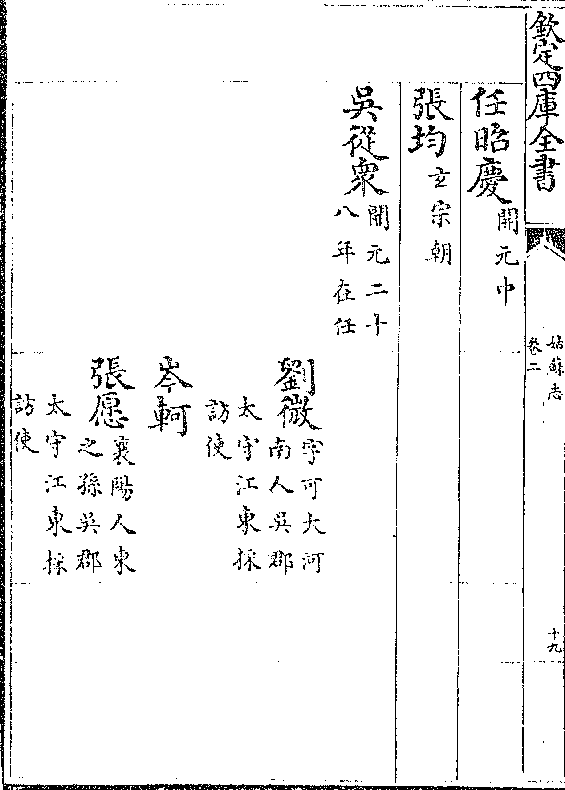 欽定四庫全書
姑蘇志
卷二
十九
任昭慶
開元中
張均
玄宗朝
吳從衆
開元二十
八年在任
劉微
字可大河
南人吳郡
太守江東採
訪使
岑軻
張愿
襄陽人東
之孫吳郡
太守江東採
訪使